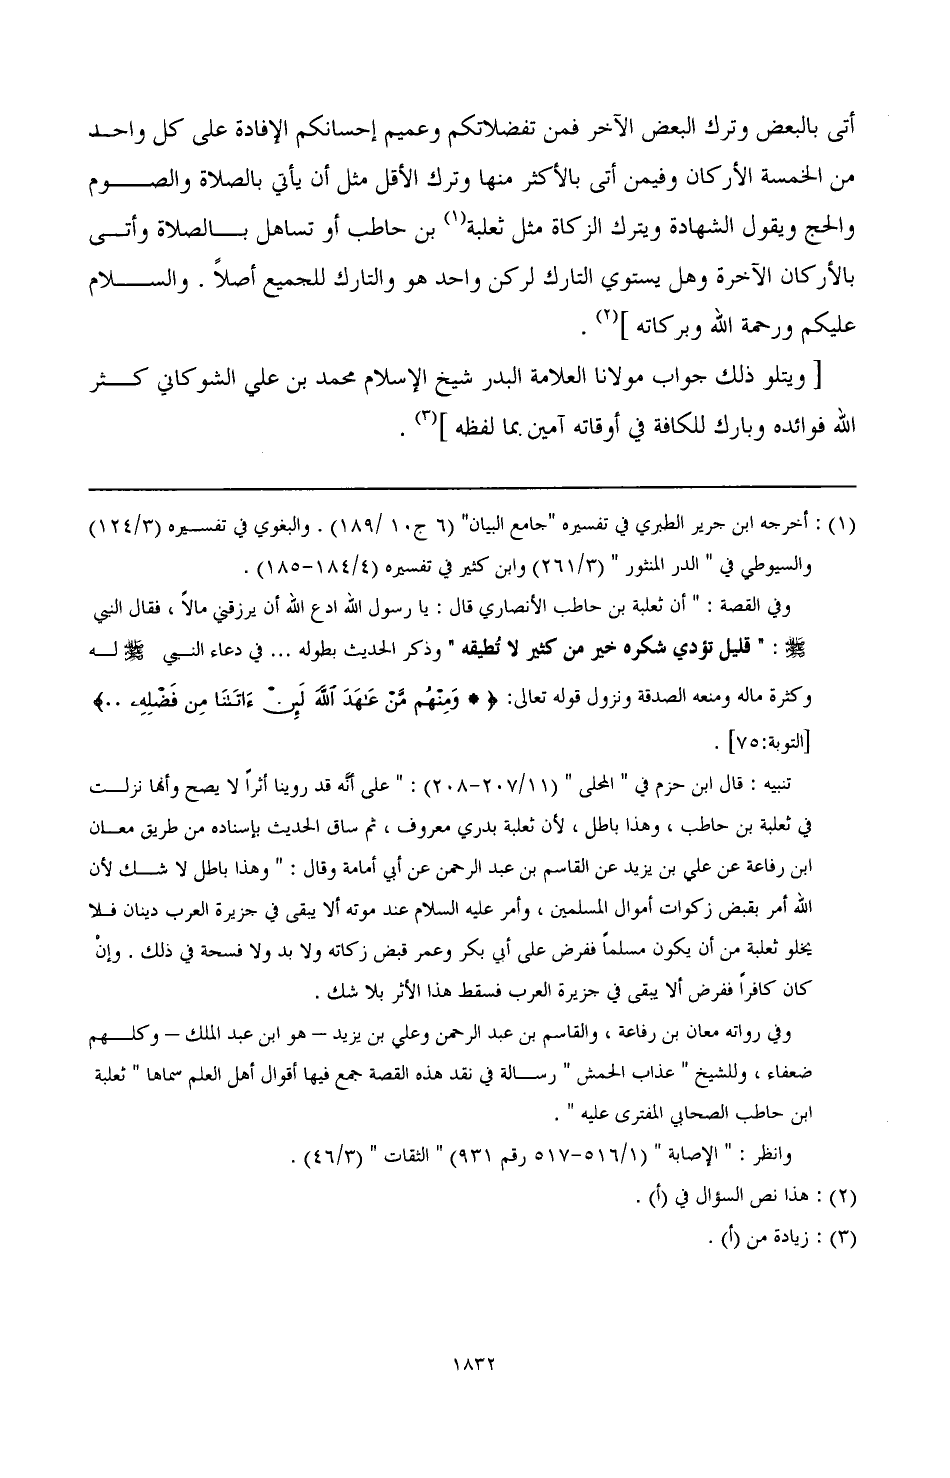 أتى بالبعض وترك البعض الآخر فمن تفضلاتكم وعميم إحسانكم الإفادة على كل واحد
من الخمسة الأركان وفيمن أتى بالأكثر منها وترك الأقل مثل أن يأتي بالصلاة والصوم
والحج ويقول الشهادة ويترك الزكاة مثل ثعلبة(١) بن حاطب أو تساهل بالصلاة وأتى
بالأركان الآخرة وهل يستوي التارك لركن واحد هو والتارك للجميع أصلاً . والسلام
عليكم ورحمة الله وبركاته ](٢) .
[ ويتلو ذلك جواب مولانا العلامة البدر شيخ الإسلام محمد بن علي الشوكاني كثر
الله فوائده وبارك للكافة في أوقاته آمين بما لفظه ](٣) .
(١) : أخرجه ابن جرير الطبري في تفسيره "جامع البيان" (٦ ج١٠ /١٨٩) . والبغوي في تفسيره (١٢٤/٣)
والسيوطي في " الدر المنثور " (٢٦١/٣) وابن كثير في تفسيره (١٨٤/٤-١٨٥) .
وفي القصة : " أن ثعلبة بن حاطب الأنصاري قال : يا رسول الله ادع الله أن يرزقني مالاً ، فقال النبي
ﷺ : " قليل تؤدي شكره خير من كثير لا تُطيقه " وذكر الحديث بطوله ... في دعاء النبي ﷺ له
وكثرة ماله ومنعه الصدقة ونزول قوله تعالى: ﴿ * وَمِنْهُم مَّنْ عَٰهَدَ ٱللَّهَ لَئِنْ ءَاتَىٰنَا مِن فَضْلِهِۦ ..﴾
[التوبة:٧٥] .
تنبيه : قال ابن حزم في " المحلى " (٢٠٧/١١-٢٠٨) : " على أنَّه قد روينا أثراً لا يصح وأنها نزلت
في ثعلبة بن حاطب ، وهذا باطل ، لأن ثعلبة بدري معروف ، ثم ساق الحديث بإسناده من طريق معان
ابن رفاعة عن علي بن يزيد عن القاسم بن عبد الرحمن عن أبي أمامة وقال : " وهذا باطل لا شك لأن
الله أمر بقبض زكوات أموال المسلمين ، وأمر عليه السلام عند موته ألا يبقى في جزيرة العرب دينان فلا
يخلو ثعلبة من أن يكون مسلماً ففرض على أبي بكر وعمر قبض زكاته ولا بد ولا فسحة في ذلك . وإنْ
كان كافراً ففرض ألا يبقى في جزيرة العرب فسقط هذا الأثر بلا شك .
وفي رواته معان بن رفاعة ، والقاسم بن عبد الرحمن وعلي بن يزيد – هو ابن عبد الملك – وكلهم
ضعفاء ، وللشيخ " عذاب الحمش " رسالة في نقد هذه القصة جمع فيها أقوال أهل العلم سماها " ثعلبة
ابن حاطب الصحابي المفترى عليه " .
وانظر : " الإصابة " (٥١٦/١-٥١٧ رقم ٩٣١) " الثقات " (٤٦/٣) .
(٢) : هذا نص السؤال في (أ) .
(٣) : زيادة من (أ) .
١٨٣٢